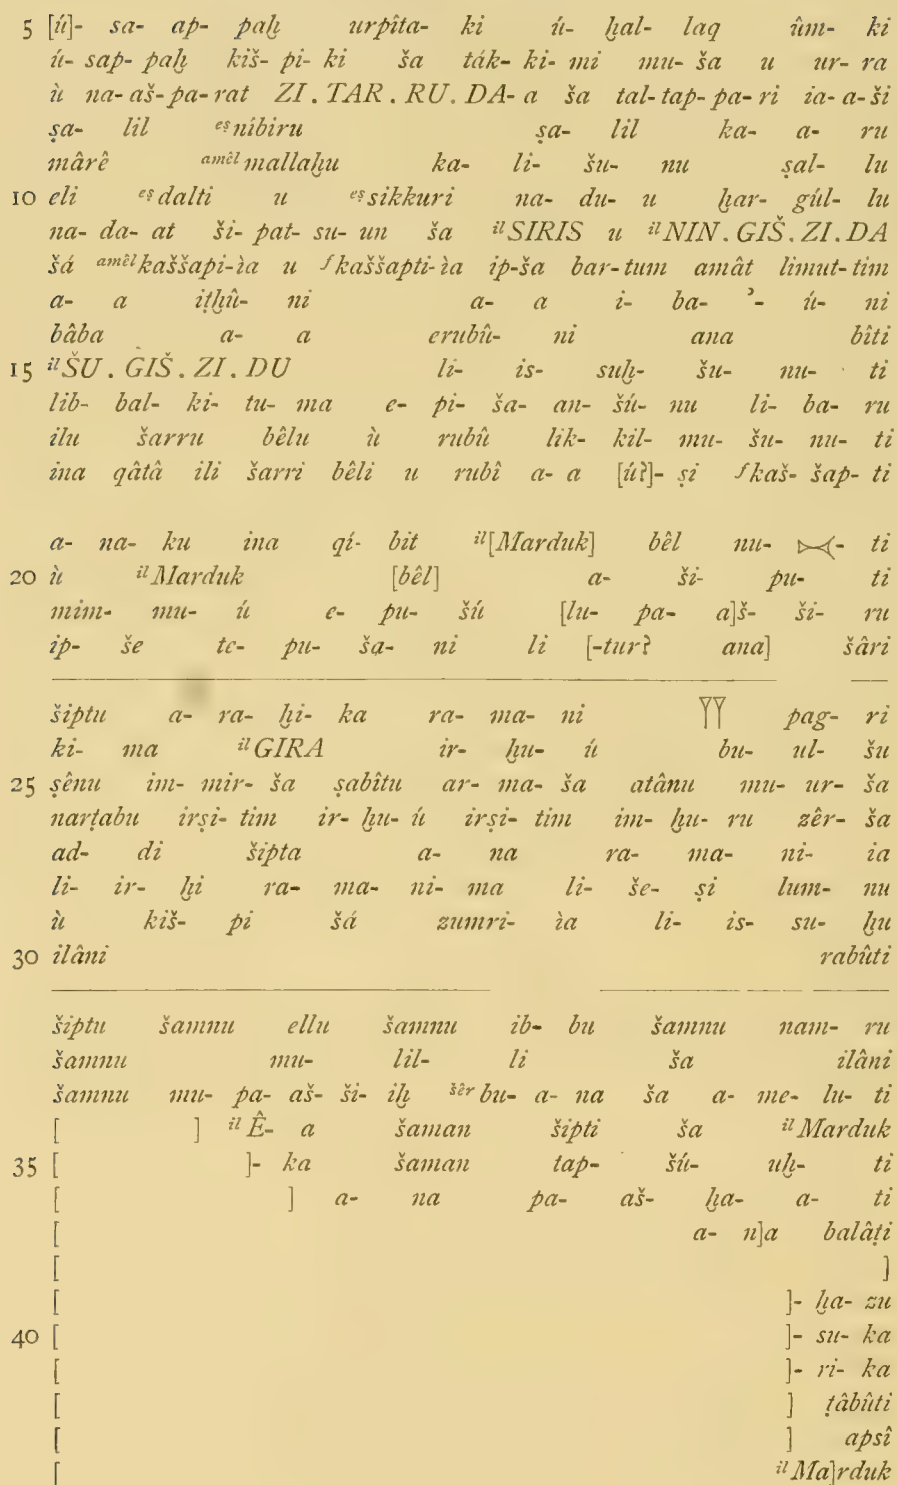 5 [ú]- sa- ap- paḫ urpîta- ki ú- ḫal- laq ûm- ki
ú- sap- paḫ kiš- pi- ki ša ták- ki- mi mu- ša u ur- ra
ù na- aš- pa- rat ZI. TAR. RU. DA- a ša tal- tap- pa- ri ia- a- ši
ṣa- lil eṣ nibiru ṣa- lil ka- a- ru
mârê amêl mallaḫu ka- li- šu- nu ṣal- lu
10 eli eṣ dalti u eṣ sikkuri na- du- u ḫar- gúl- lu
na- da- at ši- pat- su- un ša il SIRIS u il NIN. GIŠ. ZI. DA
šá amêl kaššapi- ìa u f kaššapti- ìa ip- ša bar- tum amât limut- tim
a- a iṭḫû- ni a- a i- ba- ʾ- ú- ni
bâba a- a erubû- ni ana bîti
15 il ŠU. GIŠ. ZI. DU li- is- suḫ- šu- nu- ti
lib- bal- ki- tu- ma e- pi- ša- an- šú- nu li- ba- ru
ilu šarru bêlu ù rubû lik- kil- mu- šu- nu- ti
ina qâtâ ili šarri bêli u rubî a- a [ú?]- ṣi f kaš- šap- ti
a- na- ku ina qí- bit il [Marduk] bêl nu- - ti
20 ù il Marduk [bêl] a- ši- pu- ti
mim- mu- ú e- pu- šú [lu- pa- a]š- ši- ru
ip- še te- pu- ša- ni li [-tur? ana] šâri
šiptu a- ra- ḫi- ka ra- ma- ni 𒀀 pag- ri
ki- ma il GIRA ir- ḫu- ú bu- ul- šu
25 ṣênu im- mir- ša ṣabîtu ar- ma- ša atânu mu- ur- ša
narṭabu irṣi- tim ir- ḫu- ú irṣi- tim im- ḫu- ru zêr- ša
ad- di šipta a- na ra- ma- ni- ia
li- ir- ḫi ra- ma- ni- ma li- še- ṣi lum- nu
ù kiš- pi šá zumri- ìa li- is- su- ḫu
30 ilâni rabûti
šiptu šamnu ellu šamnu ib- bu šamnu nam- ru
šamnu mu- lil- li ša ilâni
šamnu mu- pa- aš- ši- iḫ šêr bu- a- na ša a- me- lu- ti
[ ] il Ê- a šaman šipti ša il Marduk
35 [ ]- ka šaman tap- šú- uḫ- ti
[ ] a- na pa- aš- ḫa- a- ti
[ a- n]a balâṭi
[ ]
[ ]- ḫa- zu
40 [ ]- su- ka
[ ]- ri- ka
[ ] ṭâbûti
[ ] apsî
[ il Ma]rduk